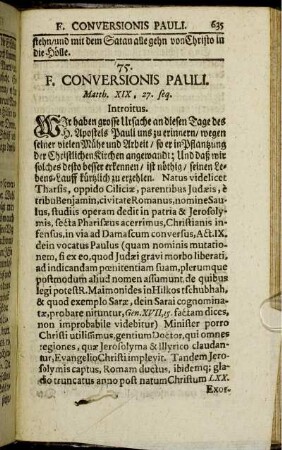 F. CONVERSIONIS PAULI. 635
stehn/und mit dem Satan alle gehn von Christo in
die Hölle.
75.
F. CONVERSIONIS PAULI.
Matth. XIX, 27. seq.
Introitus.
WIr haben grosse Ursache an diesen Tage des
H. Apostels Pauli uns zu erinnern/ wegen
seiner vielen Mühe und Arbeit / so er in Pflantzung
der Christlichen Kirchen angewandt; Und daß wir
solches desto besser erkennen/ ist nöthig/ seinen Le-
bens-Lauff kürtzlich zu erzehlen. Natus videlicet
Tharsis, oppido Ciliciæ, parentibus Judæis, è
tribu Benjamin, civitate Romanus, nomine Sau-
lus, studiis operam dedit in patria & Jerosoly-
mis, secta Pharisæus acerrimus, Christianis in-
fensus, in via ad Damascum conversus, Act. IX.
dein vocatus Paulus (quam nominis mutatio-
neto, si ex eo, quod Judæi gravi morbo liberati,
ad indicandam pœnitentiam suam, plerumque
postmodum aliud nomen assumunt de quibus
legi potest R. Maimonides in Hilkos tschubhah,
& quod exemplo Saræ, dein Sarai cognomina-
tæ, probare nituntur, Gen. XVII, 15. factam dices,
non improbabile videbitur) Minister porro
Christi utilissimus, gentium Doctor, qui omnes
regiones, quæ Jerosolyma & Illyrico claudan-
tur, Evangelio Christi implevit. Tandem Jero-
solymis captus, Romam ductus, ibidemq; gla-
dio truncatus anno post natum Christum LXX.
Exor-